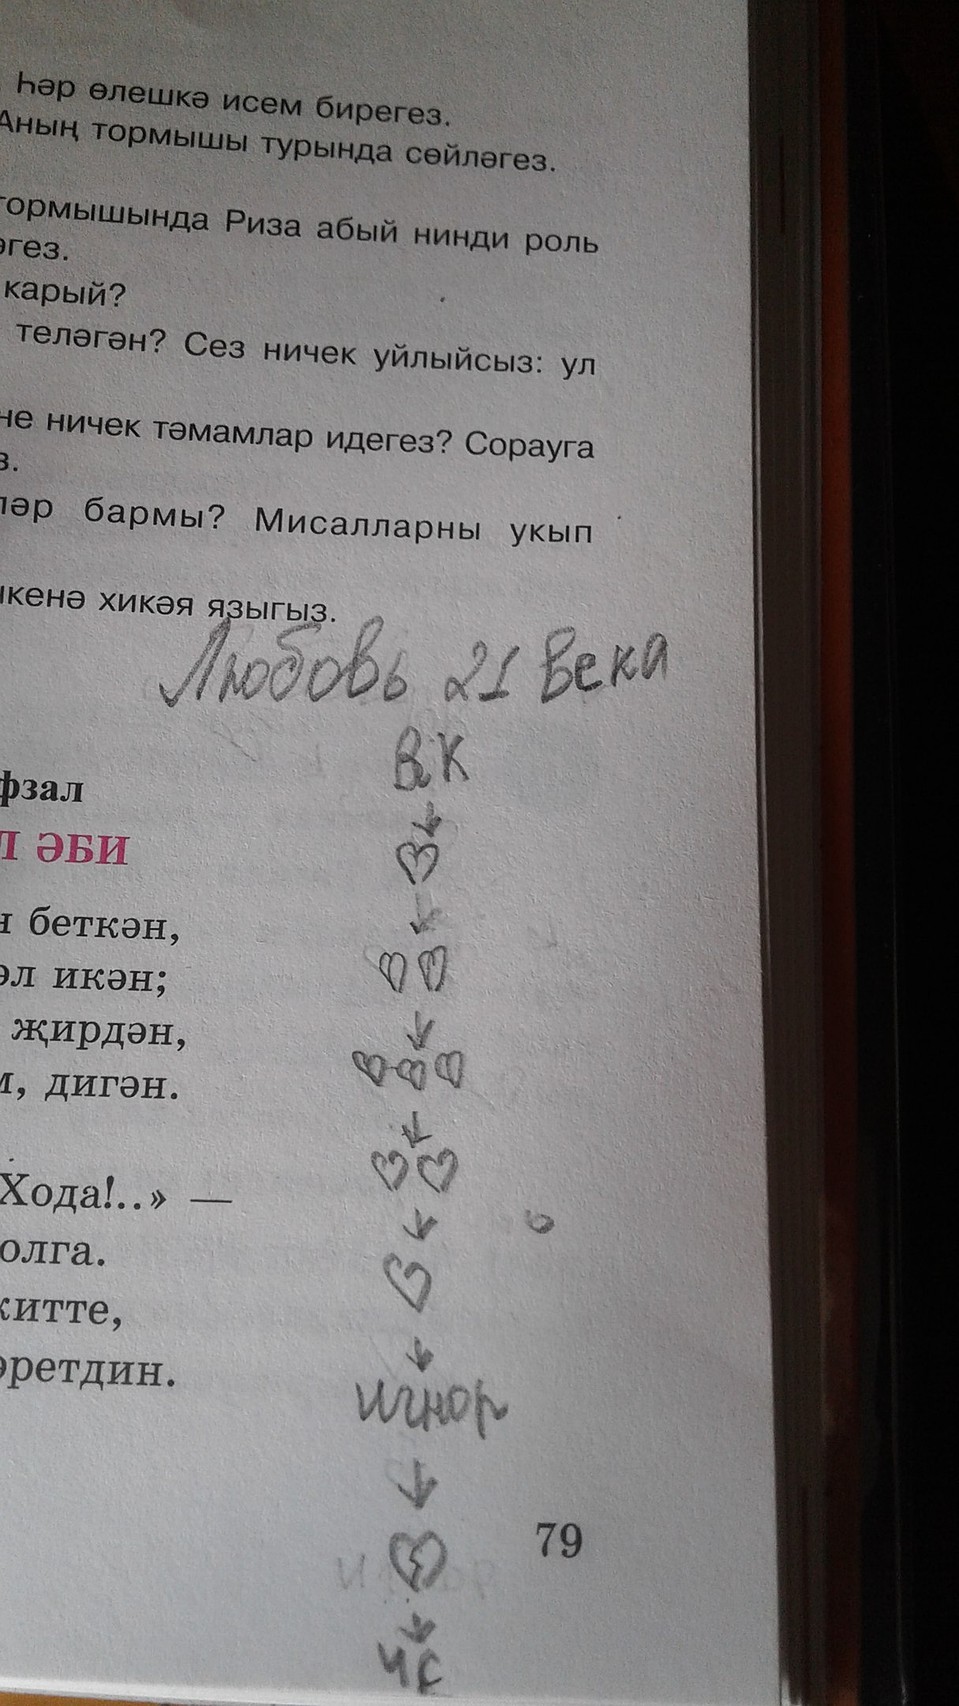 Һәр өлешкә исем бирегез.
Аның тормышы турында сөйләгез.
тормышында Риза абый нинди роль
әгез.
карый?
теләгән? Сез ничек уйлыйсыз: ул
не ничек тәмамлар идегез? Сорауга
з.
ләр бармы? Мисалларны укып
кенә хикәя языгыз.
Любовь 21 века
ВК
фзал
Л ӘБИ
н беткән,
әл икән;
җирдән,
м, дигән.
Хода!..» —
олга.
китте,
әретдин.
игнор
79
ЧС